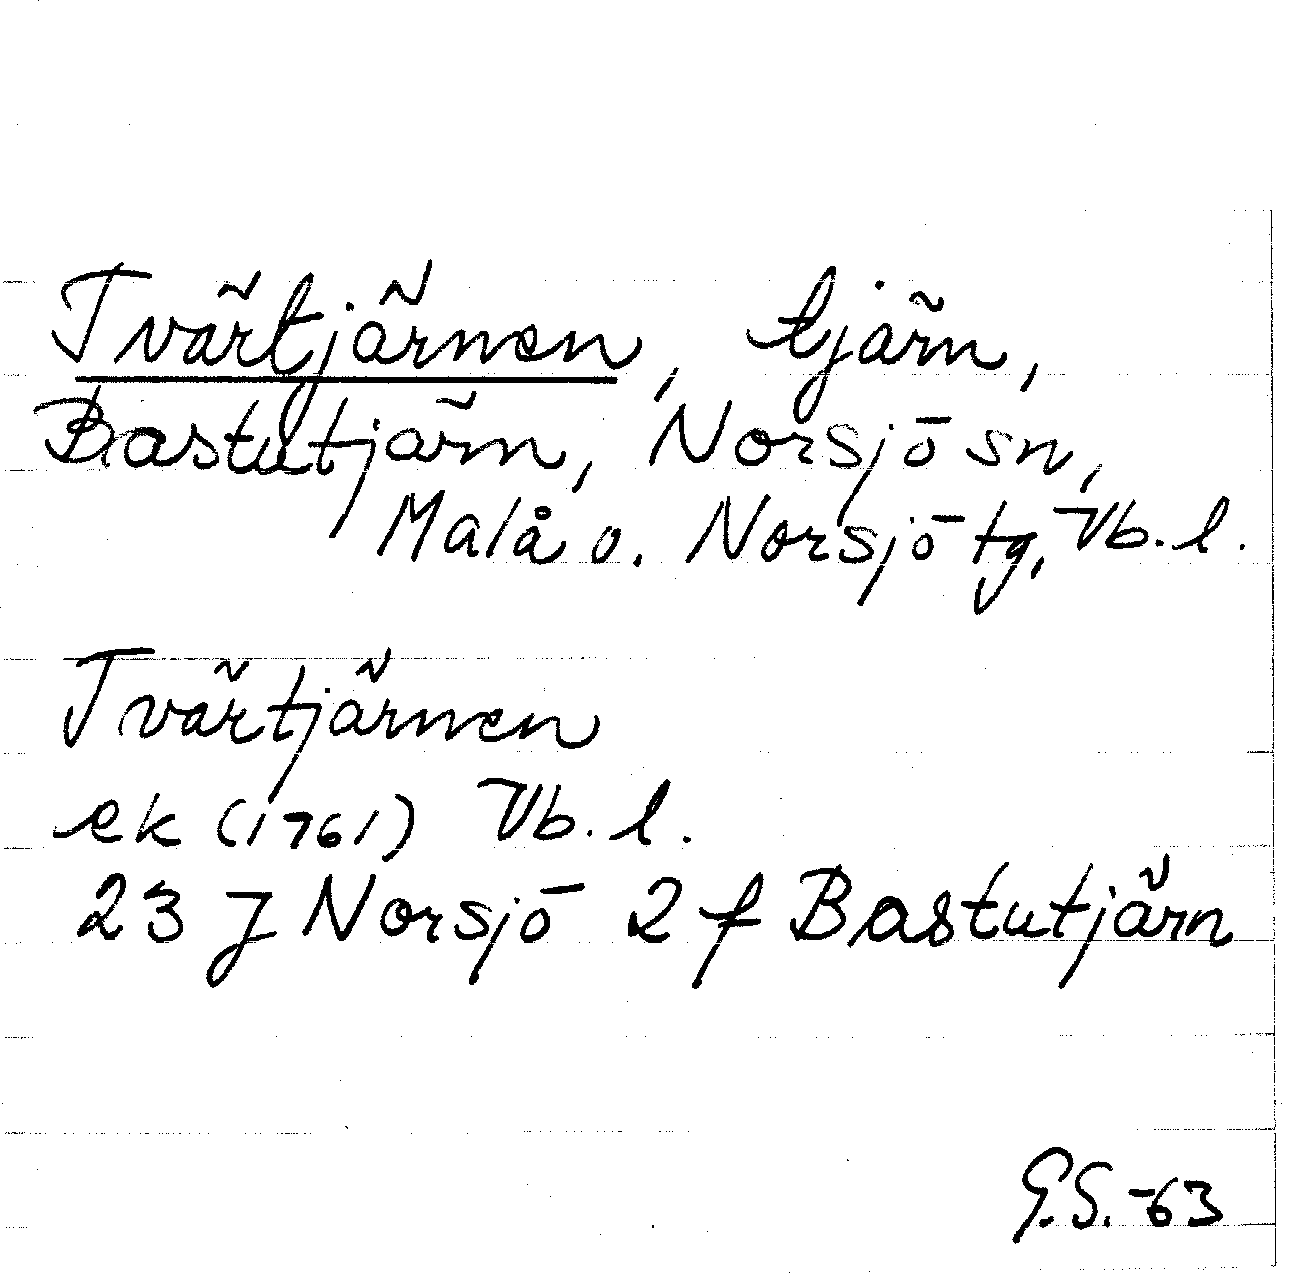 Tvärtjärnen, tjärn,
Bastutjärn, Norsjö sn,
Malå o. Norsjö tg, Vb. l.
Tvärtjärnen
ek (1761) Vb. l.
23 J Norsjö 2 f Bastutjärn
G.S. -63